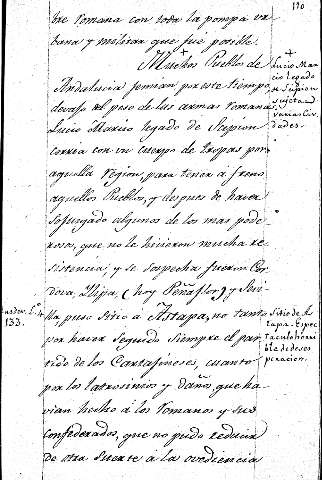 110
bre romana con toda la pompa ur
bana y militar que fué posible.
Muchos Pueblos de
Andalucia gemian por este tiempo
devajo el peso de las armas romanas
Lucio Marcio legado de Scipion
corria con un cuerpo de tropas por
aquella region, para tener á freno
aquellos Pueblos, y despues de haver
sojuzgado algunos de los mas pode
rosos, que no le hicieron mucha re
sistencia, y se sospecha fueron Cor
dova, Ilipa, (hoy Peñaflor) y Sevi
lla puso sitio á Astapa, no tanto
por haver seguido siempre el par
tido de los Cartagineses, cuanto
por los latrocinios y daños, que ha
vian hecho á los romanos y sus
confederados, que no pudo reducir
de otra suerte á la ovediencia
+
Lucio Mar
cio legado
de Scipion
sujeta á
varias Ciu
dades.
133.
Sitio de As
tapa. Espec
taculo horri
ble de deses
peracion.